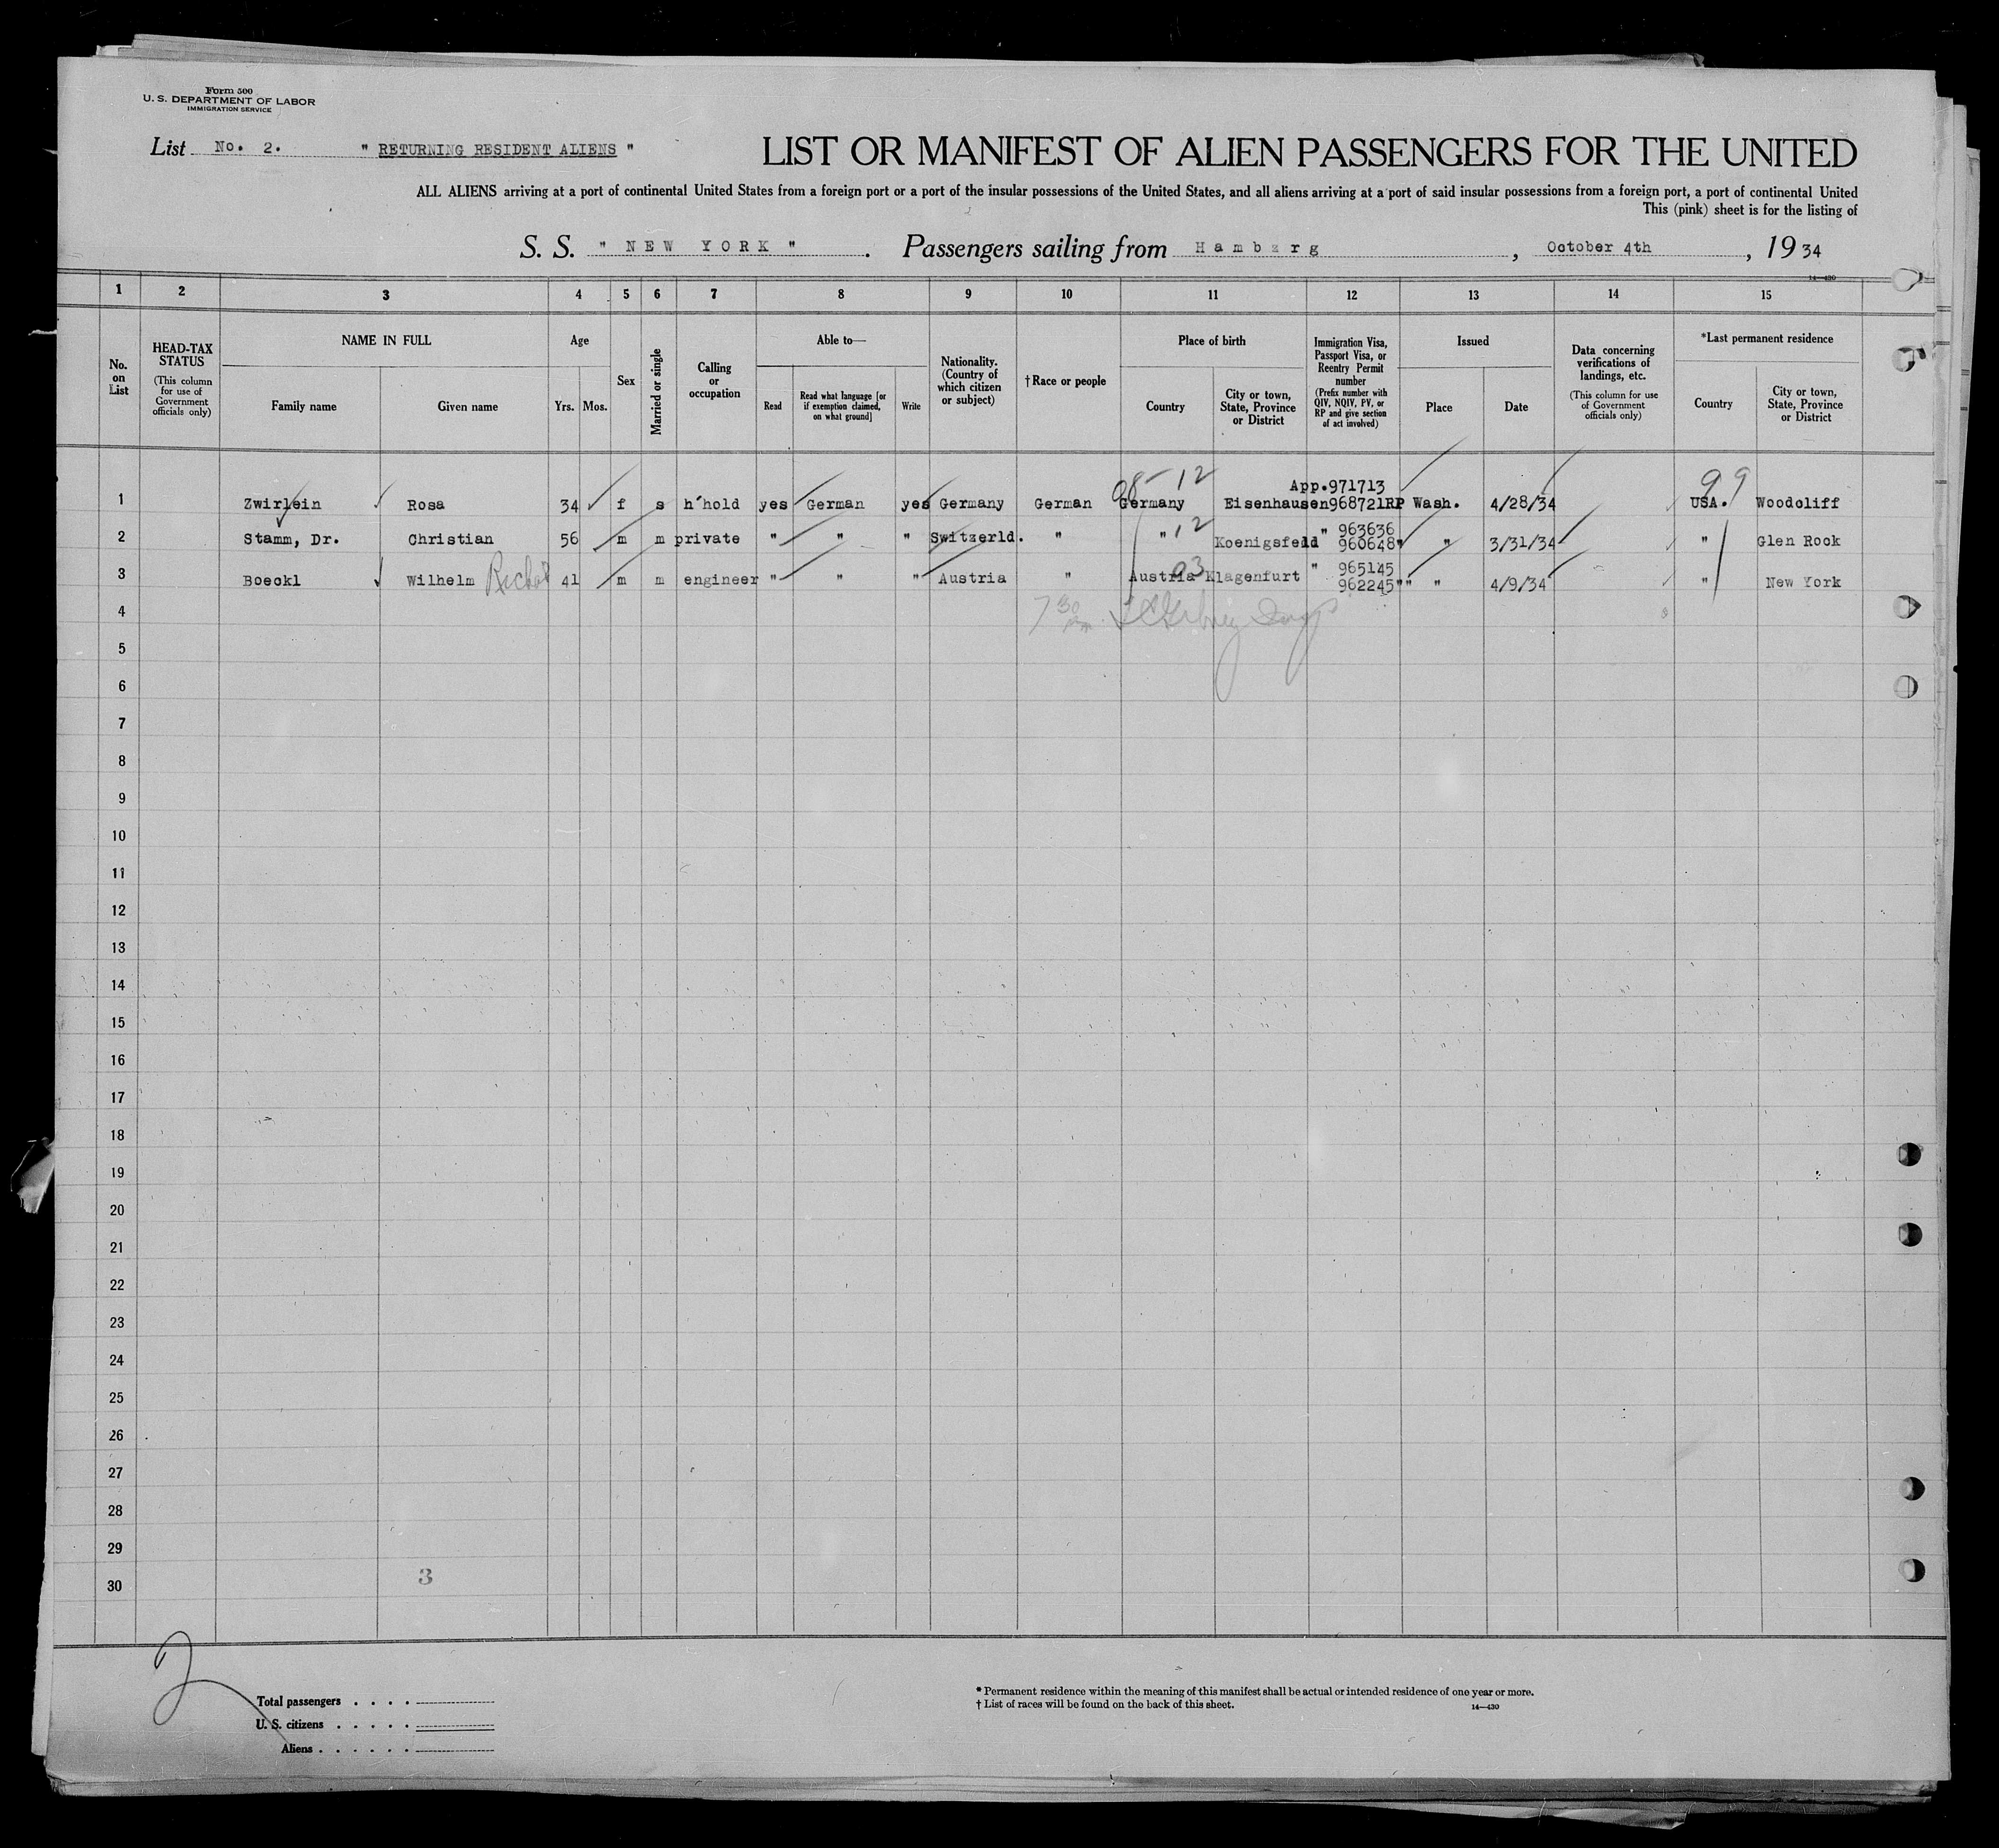 Form 500
U. S. DEPARTMENT OF LABOR
IMMIGRATION SERVICE
List No. 2. " RETURNING RESIDENT ALIENS "
LIST OR MANIFEST OF ALIEN PASSENGERS FOR THE UNITED
ALL ALIENS arriving at a port of continental United States from a foreign port or a port of the insular possessions of the United States, and all aliens arriving at a port of said insular possessions from a foreign port, a port of continental United
This (pink) sheet is for the listing of
S. S. " NEW YORK " . Passengers sailing from Hamburg , October 4th , 1934
14—430
1 2 3 4 5 6 7 8 9 10 11 12 13 14 15
No. on List
HEAD-TAX STATUS
(This column for use of Government officials only)
NAME IN FULL
Family name
Given name
Age
Yrs. Mos.
Sex
Married or single
Calling or occupation
Able to—
Read
Read what language [or if exemption claimed, on what ground]
Write
Nationality. (Country of which citizen or subject)
†Race or people
Place of birth
Country
City or town, State, Province or District
Immigration Visa, Passport Visa, or Reentry Permit number
(Prefix number with QIV, NQIV, PV, or RP and give section of act involved)
Issued
Place
Date
Data concerning verifications of landings, etc.
(This column for use of Government officials only)
*Last permanent residence
Country
City or town, State, Province or District
98-12 App.971713 99
1 Zwirlein Rosa 34 f s h'hold yes German yes Germany German Germany Eisenhausen 968721RP Wash. 4/28/34 USA. Woodcliff
12 " 963636
2 Stamm, Dr. Christian 56 m m private " " " Switzerld. " " Koenigsfeld 960648" " 3/31/34 " Glen Rock
03 " 965145
3 Boeckl Wilhelm 41 m m engineer " " " Austria " Austria Klagenfurt 962245"" " 4/9/34 " New York
4 7 30
5
6
7
8
9
10
11
12
13
14
15
16
17
18
19
20
21
22
23
24
25
26
27
28
29
3
30
2
Total passengers . . . .
U. S. citizens . . . . .
Aliens . . . . . .
* Permanent residence within the meaning of this manifest shall be actual or intended residence of one year or more.
† List of races will be found on the back of this sheet.
14—430